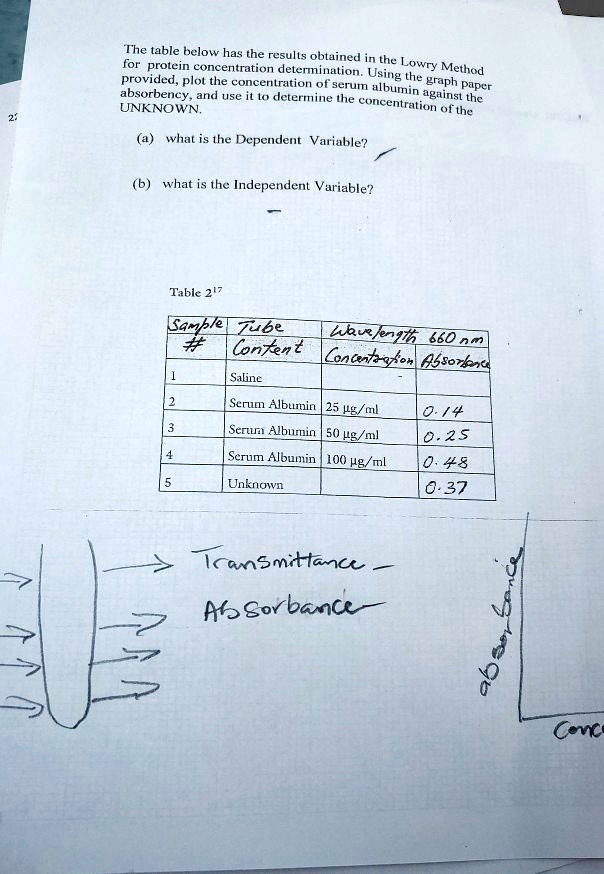 The table below has the results obtained in the Lowry Method
for protein concentration determination. Using the graph paper
provided, plot the concentration of serum albumin against the
absorbency, and use it to determine the concentration of the
UNKNOWN.
22
(a) what is the Dependent Variable?
(b) what is the Independent Variable?
Table 2¹⁷
Sample # Tube Content Wavelength 660 nm
Concentration Absorbance
1 Saline -
2 Serum Albumin 25 µg/ml 0.14
3 Serum Albumin 50 µg/ml 0.25
4 Serum Albumin 100 µg/ml 0.48
5 Unknown 0.37
Transmittance -
Absorbance
absorbance
Conc